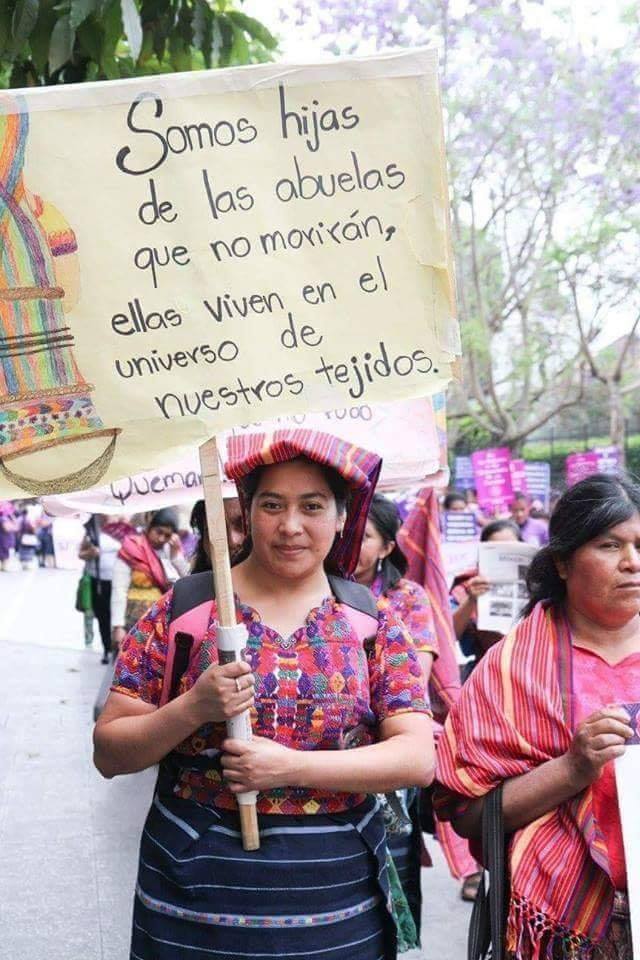 Somos hijas
de las abuelas
que no morirán,
ellas viven en el
universo de
nuestros tejidos.